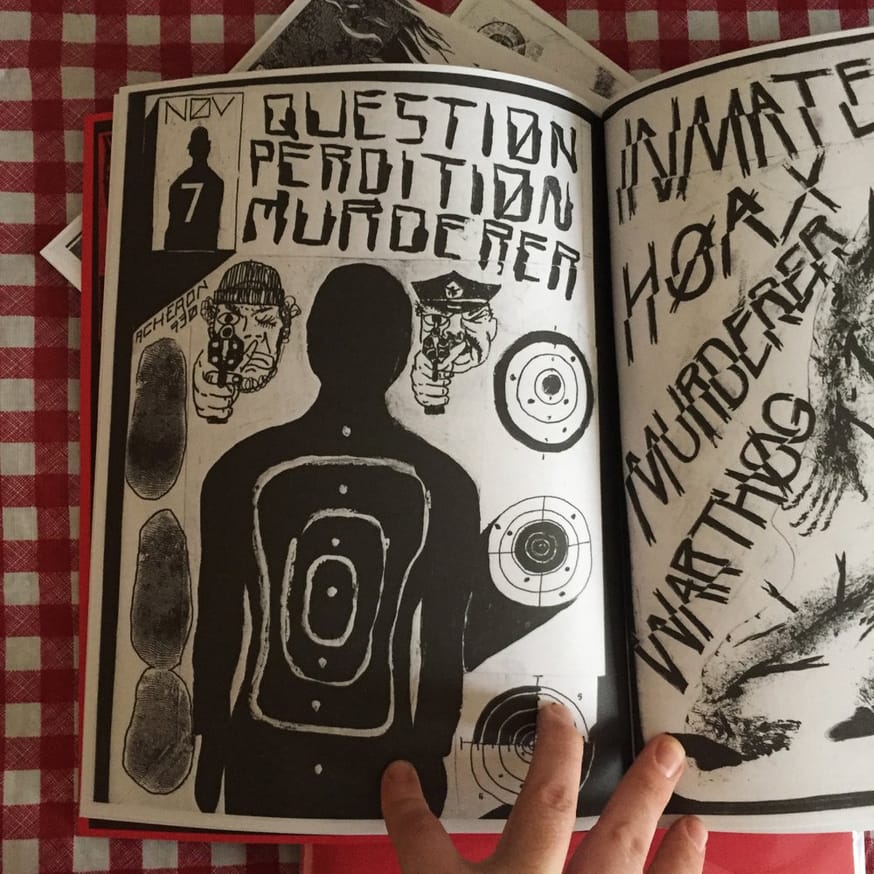 NØV
7
QUESTIØN
PERDITIØN
MURDERER
ACHERØN
930
INMATE
HØAX
MURDERER
WARTHØG